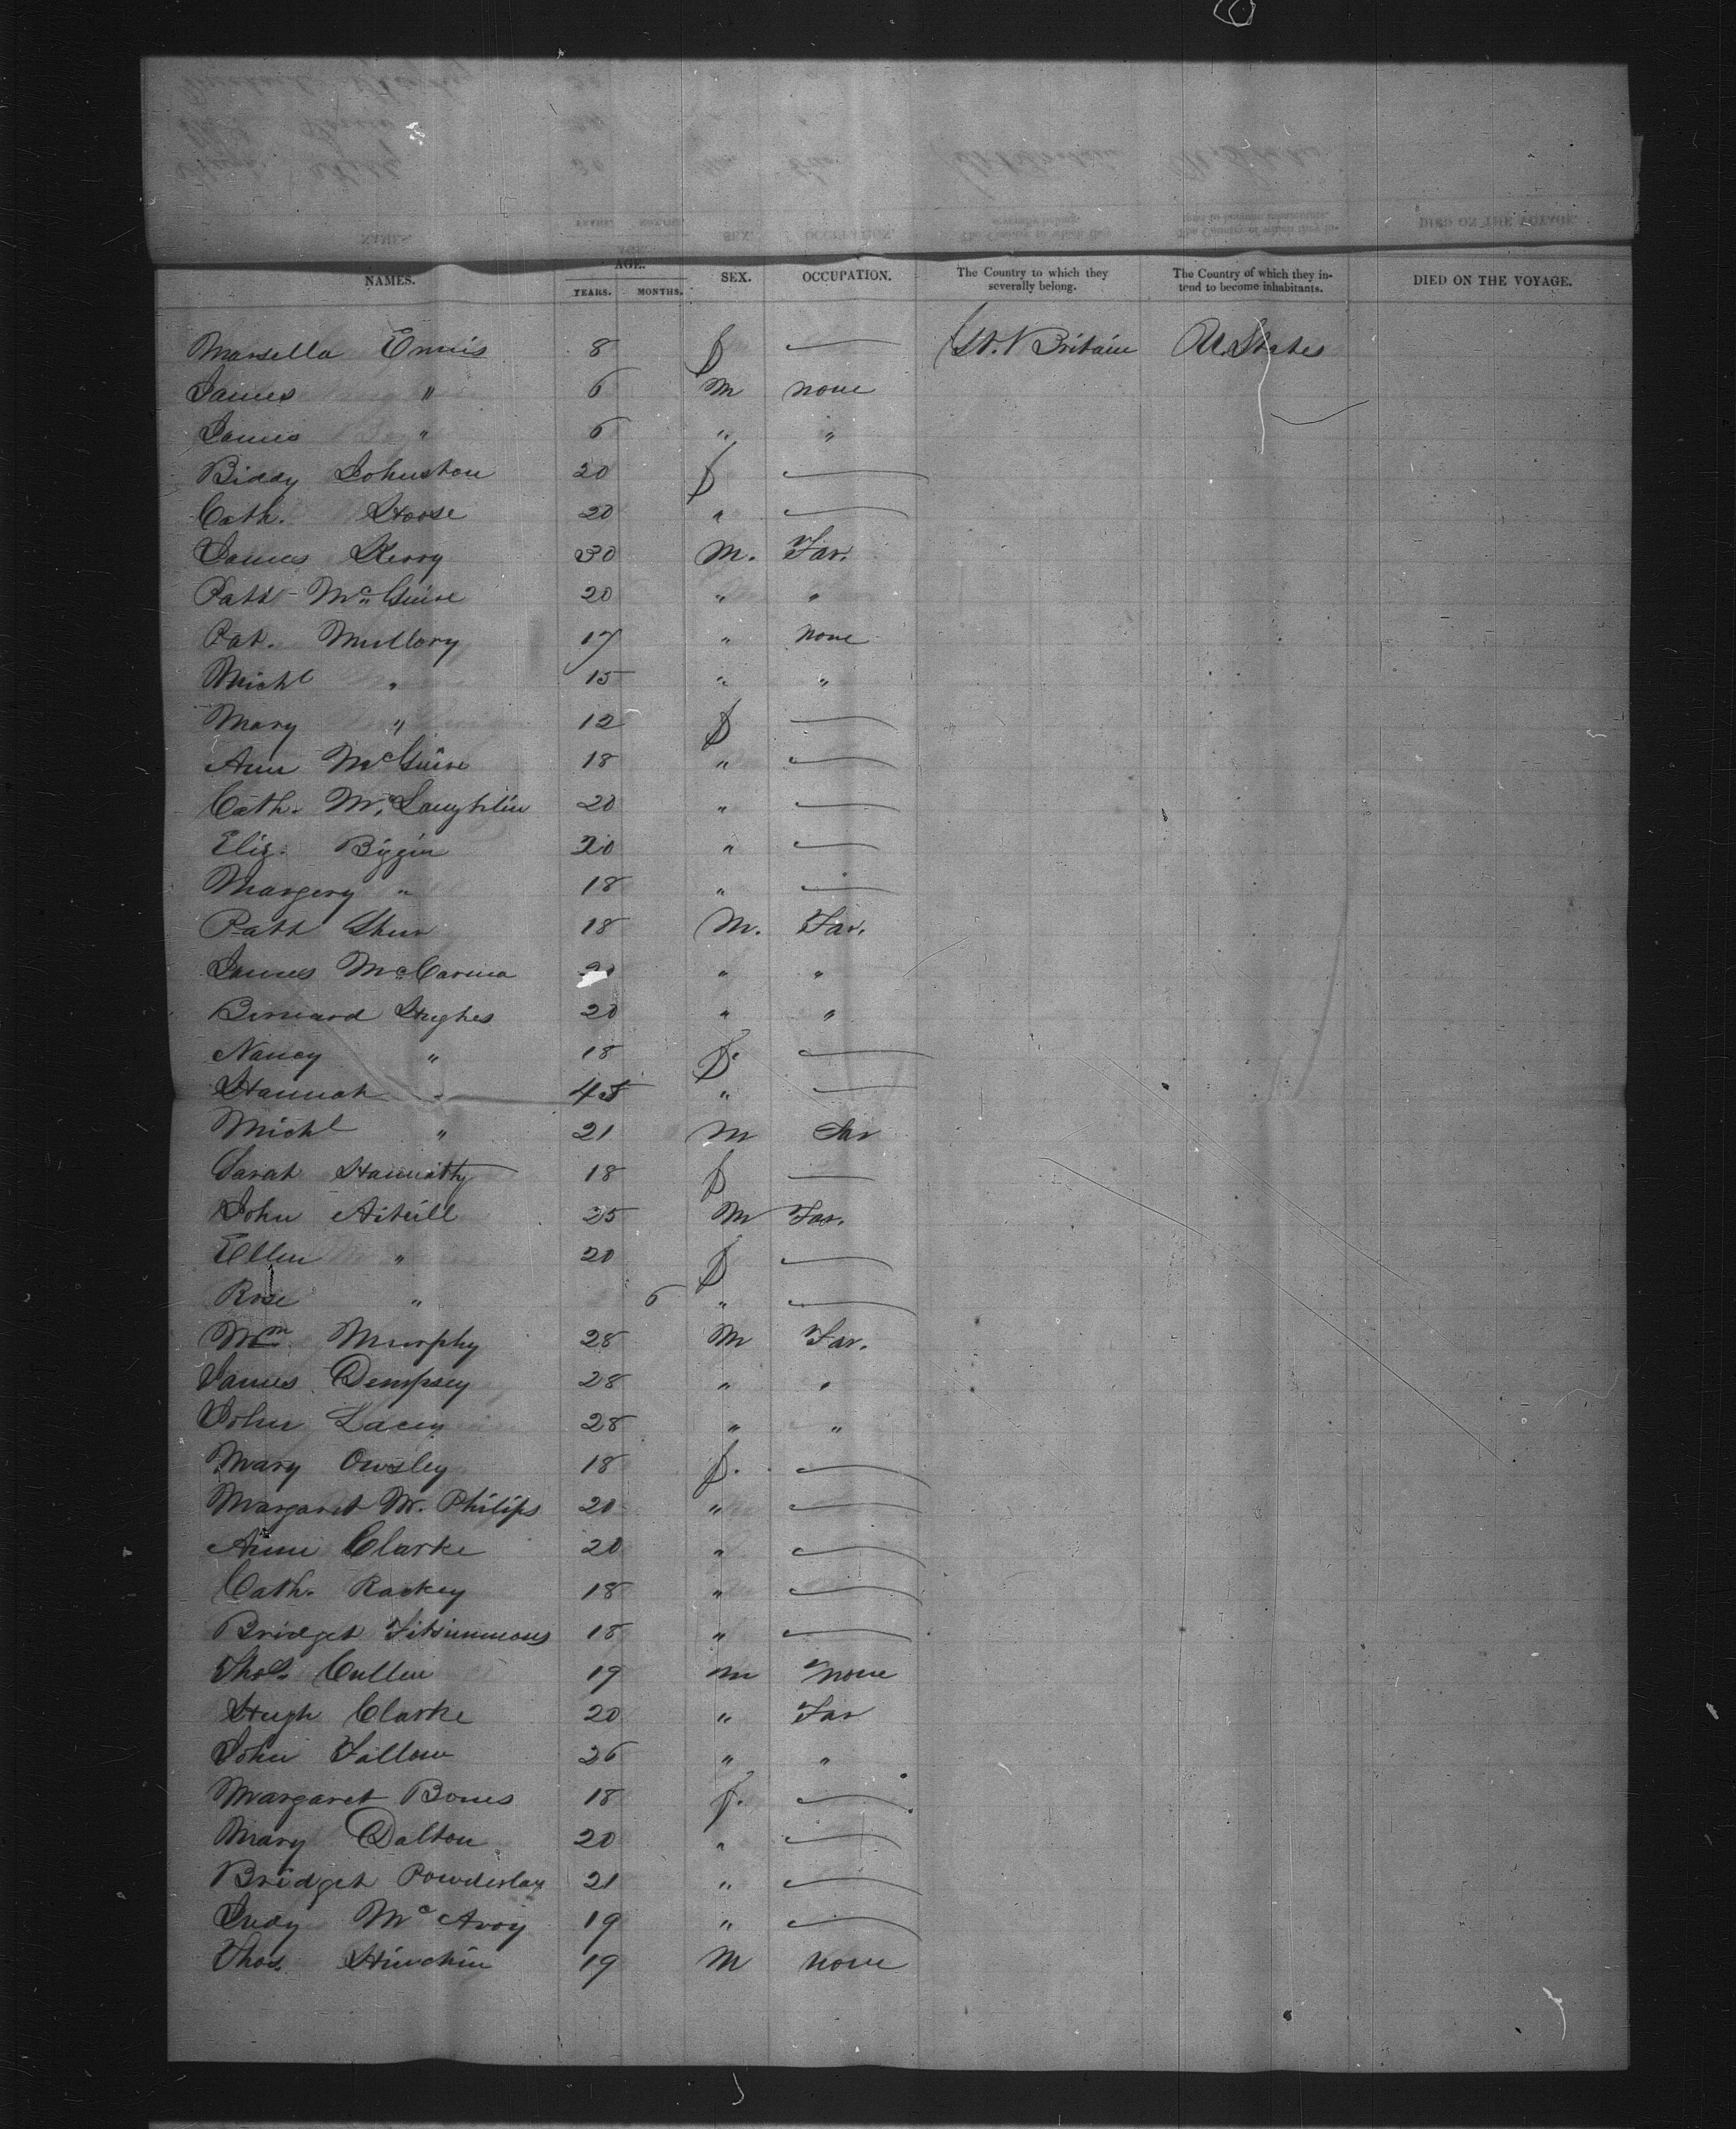 NAMES. AGE. YEARS. MONTHS. SEX. OCCUPATION. The Country to which they severally belong. The Country of which they intend to become inhabitants. DIED ON THE VOYAGE.
Marsella Ennis 8 f — Gt. Britain U. States
James " 6 M none
James " 6 " "
Biddy Johnston 20 f —
Cath. 20 " —
James Kerry 30 M. Far.
Patt McGuire 20 " "
Pat. Mullory 17 " none
Michl " 15 " "
Mary " 12 f —
Ann McGuire 18 " —
Cath. McLaughlin 20 " —
Eliz. Biggin 20 " —
Margery " 18 " —
Patt 18 M. Far.
James " "
Bernard Hughes 20 " "
Nancy " 18 f. —
Hannah " 45 " —
Michl " 21 M Far
Sarah 18 f —
John 25 M Far.
Ellen " 20 f —
Rose " 6 " —
Wm. Murphy 28 M Far.
James Dempsey 28 " "
John Lacey 28 " "
Mary Owsley 18 f. —
Margaret M. Philips 20 " —
Anne Clarke 20 " —
Cath. Rackey 18 " —
Bridget Fitsimmons 18 " —
Thos. Cullen 19 m none
Hugh Clarke 20 " Far
John Fallow 26 " "
Margaret Bones 18 f. —
Mary Dalton 20 " —
Bridget Powderlay 21 " —
Judy McAvoy 19 " —
Thos. Hinchin 19 M none